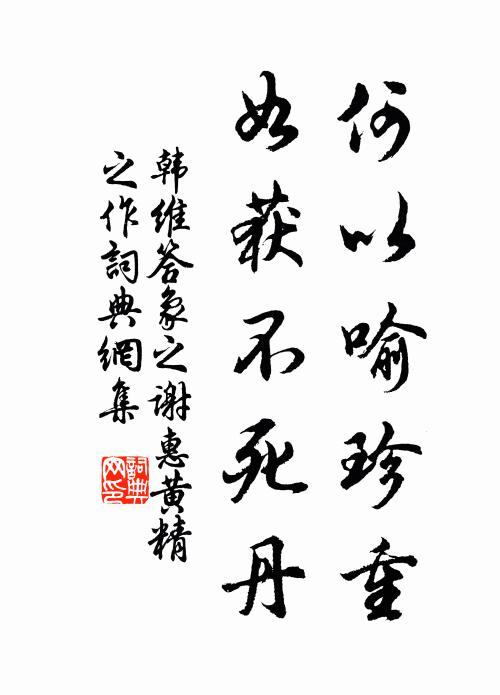 何以喻珍重
如获不死丹
韩维答象之谢惠黄精
之作詞典網集
詞典
网印